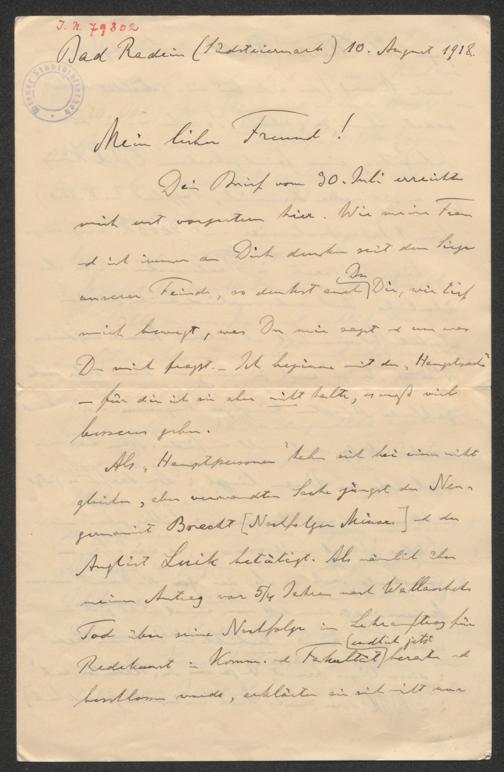 J. N. 79302
Wiener Stadtbibliothek
Bad Radein (Südsteiermark) 10. August 1918.
Mein lieber Freund!
Dein Brief vom 30. Juli erreichte
mich erst vorgestern hier. Wie meine Frau
u ich immer an Dich denken seit dem Siege
unserer Feinde, so denkst auch Du Dir, wie tief
mich bewegt, was Du mir sagst u um was
Du mich fragst. – Ich beginne mit der „Hauptsache“
– für die ich sie aber nicht halte, es muß viel
besseres geben.
Als „Hauptpersonen“ haben sich bei einer nicht
gleichen, aber verwandten Sache jüngst der Neu-
germanist Brecht [Nachfolger Minors] u der
Anglist Luick betätigt. Als nämlich über
meinen Antrag vor 5/4 Jahren nach Wallascheks
Tod über seine Nachfolge im Lehrauftrag für
Redekunst in Komm. u Fakultät (endlich jetzt) beraten u
beschlossen wurde, erklärten sie sich nicht nur